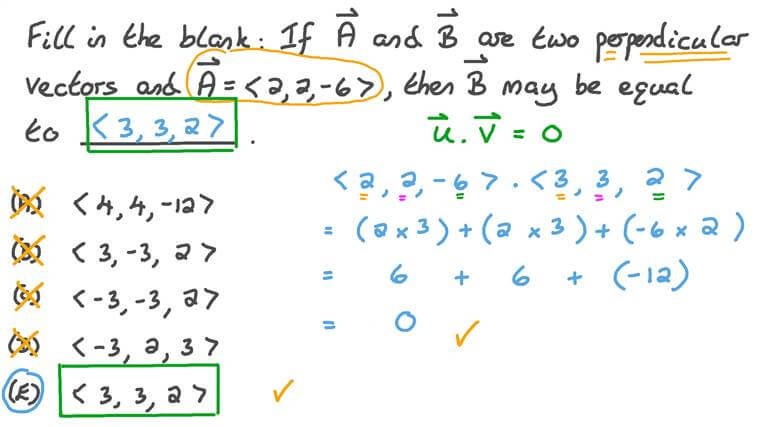 Fill in the blank: If A⃗ and B⃗ are two perpendicular
vectors and A⃗ = <2, 2, -6>, then B⃗ may be equal
to <3, 3, 2>.
u⃗ . v⃗ = 0
(A) <4, 4, -12>
(B) <3, -3, 2>
(C) <-3, -3, 2>
(D) <-3, 2, 3>
(E) <3, 3, 2> ✓
<2, 2, -6> . <3, 3, 2>
= (2 × 3) + (2 × 3) + (-6 × 2)
= 6 + 6 + (-12)
= 0 ✓